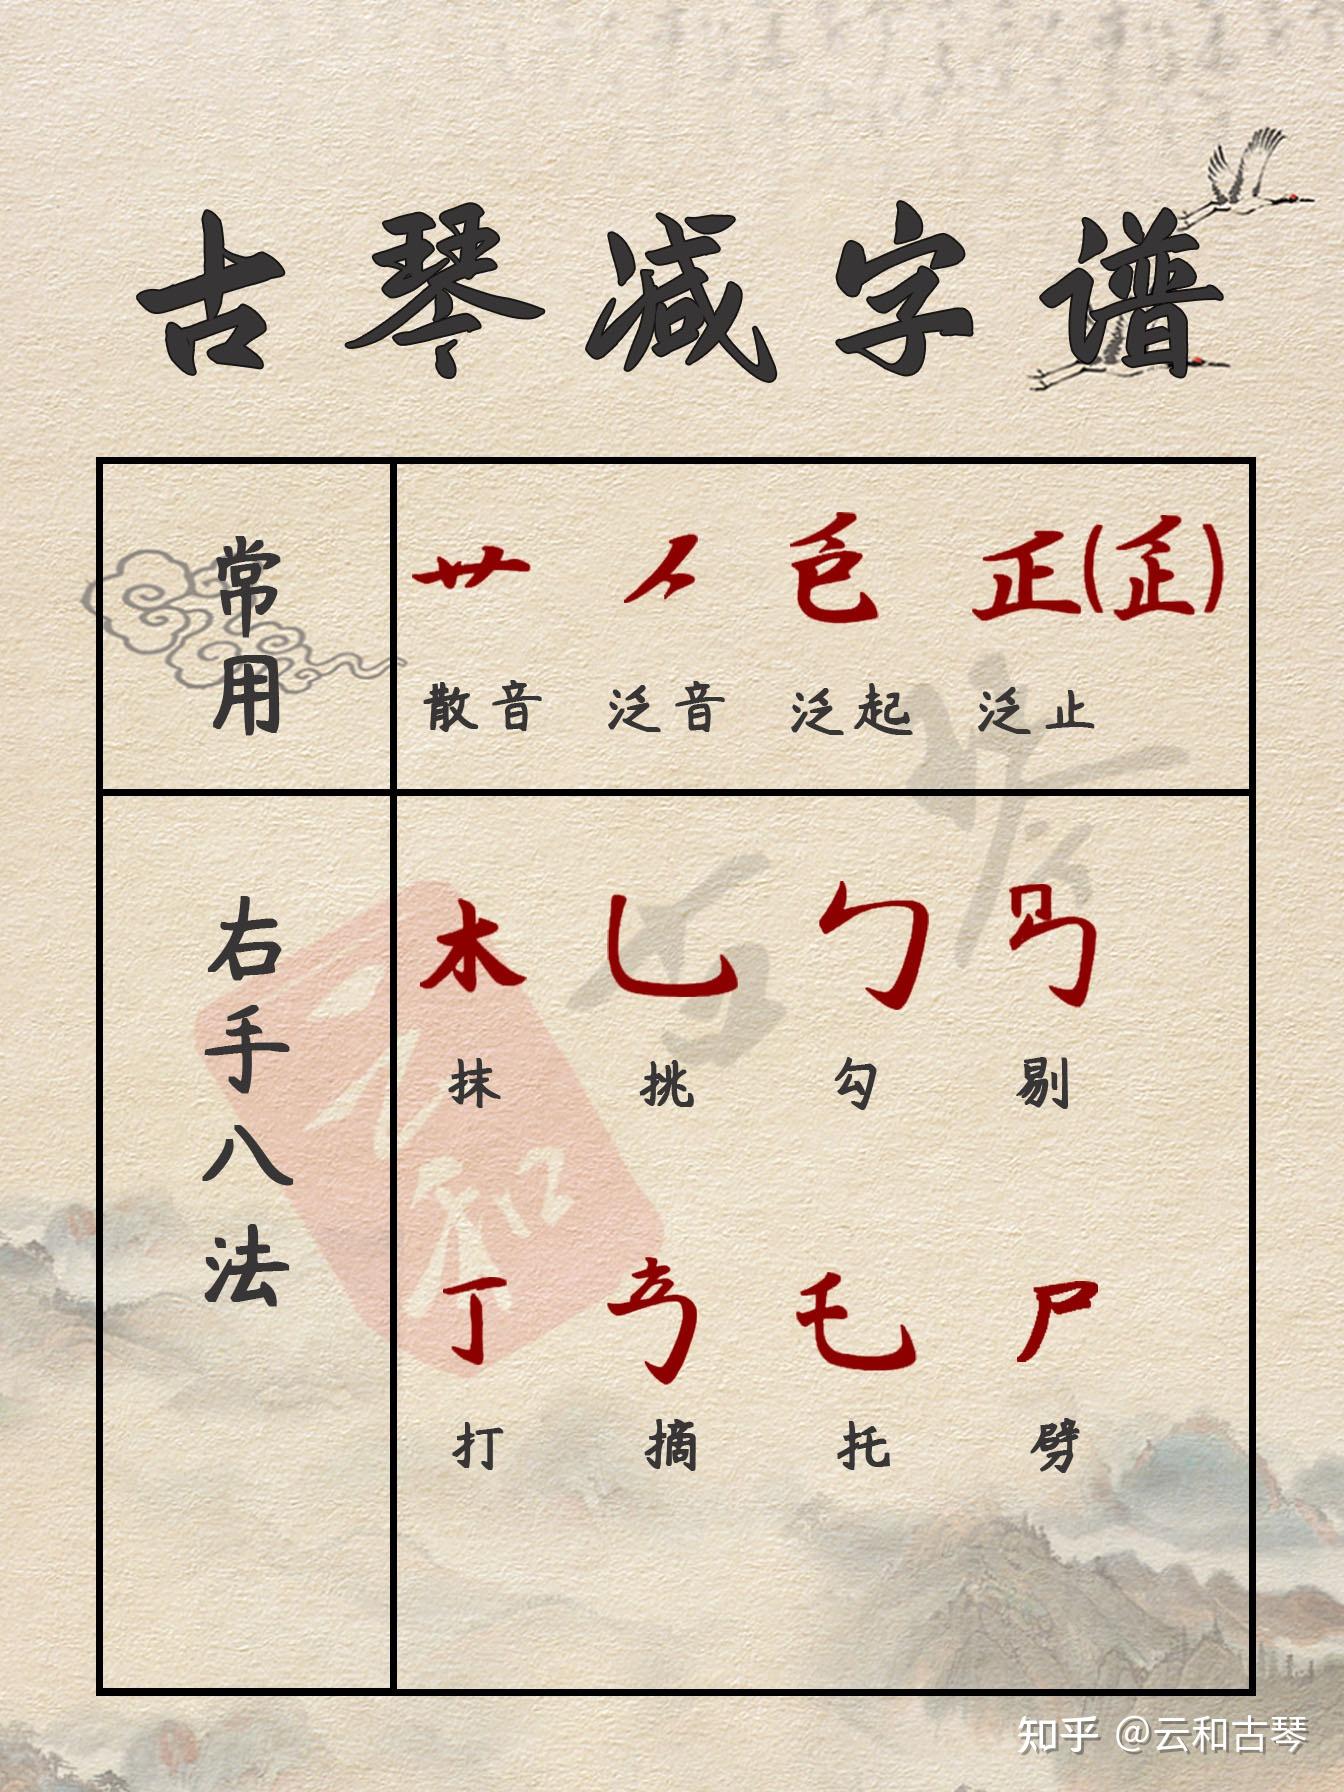 古琴减字谱
常用
散音 泛音 泛起 泛止
右手八法
木 乚 勹
抹 挑 勾 剔
丁 乇 尸
打 摘 托 劈
云和
古琴
知乎 @云和古琴